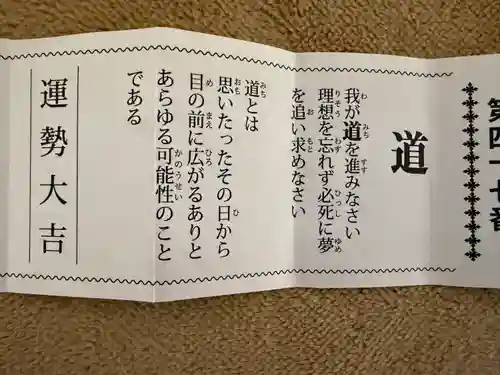 第四十七番
道
我が道を進みなさい
理想を忘れず必死に夢
を追い求めなさい
道とは
思いたったその日から
目の前に広がるありと
あらゆる可能性のこと
である
運勢大吉